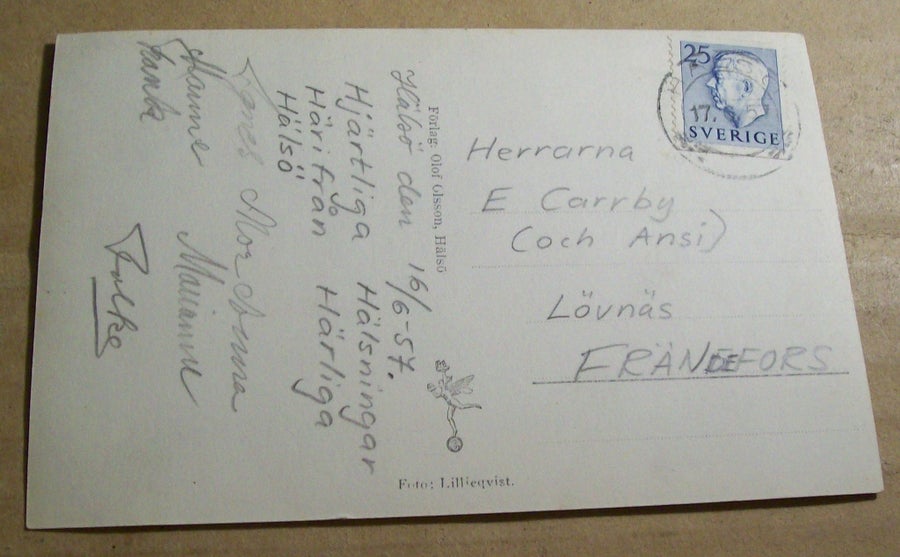 Hälsö den 16/6-57.
Hjärtliga Hälsningar
Härifrån Härliga
Hälsö
Mor Anna
Hanne Marianne
Folke
Förlag: Olof Olsson, Hälsö
Foto: Lilljeqvist.
25
17.
SVERIGE
Herrarna
E Carrby
(och Ansi)
Lövnäs
FRÄNDEFORS